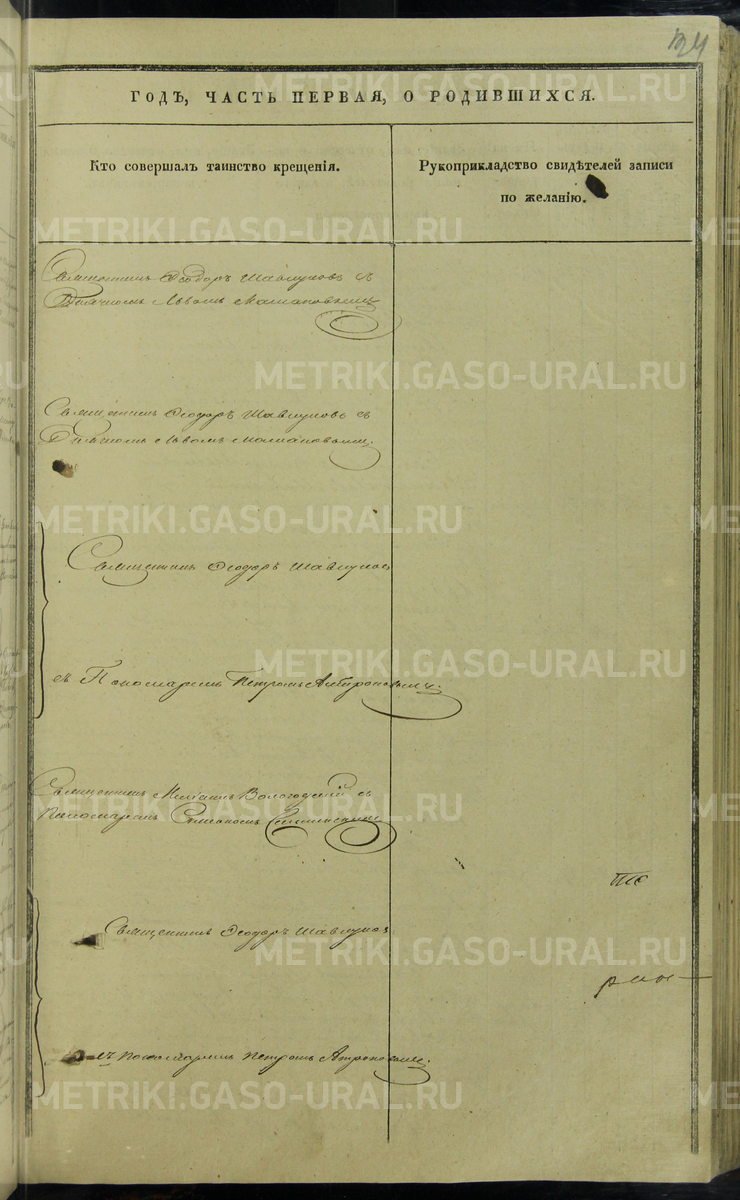 134
ГОДЪ, ЧАСТЬ ПЕРВАЯ, О РОДИВШИХСЯ.
Кто совершалъ таинство крещенія.
Рукоприкладство свидѣтелей записи
по желанію.
Священникъ Ѳеодоръ Шавкуновъ съ
Дьячкомъ Львомъ
Священникъ Ѳеодоръ Шавкуновъ съ
Дьячкомъ Львомъ
Священникъ Ѳеодоръ Шавкуновъ
съ Пономаремъ Петромъ
Священникъ Вологодскій съ
Пономаремъ
Священникъ Ѳеодоръ Шавкуновъ
съ Пономаремъ Петромъ
METRIKI.GASO-URAL.RU